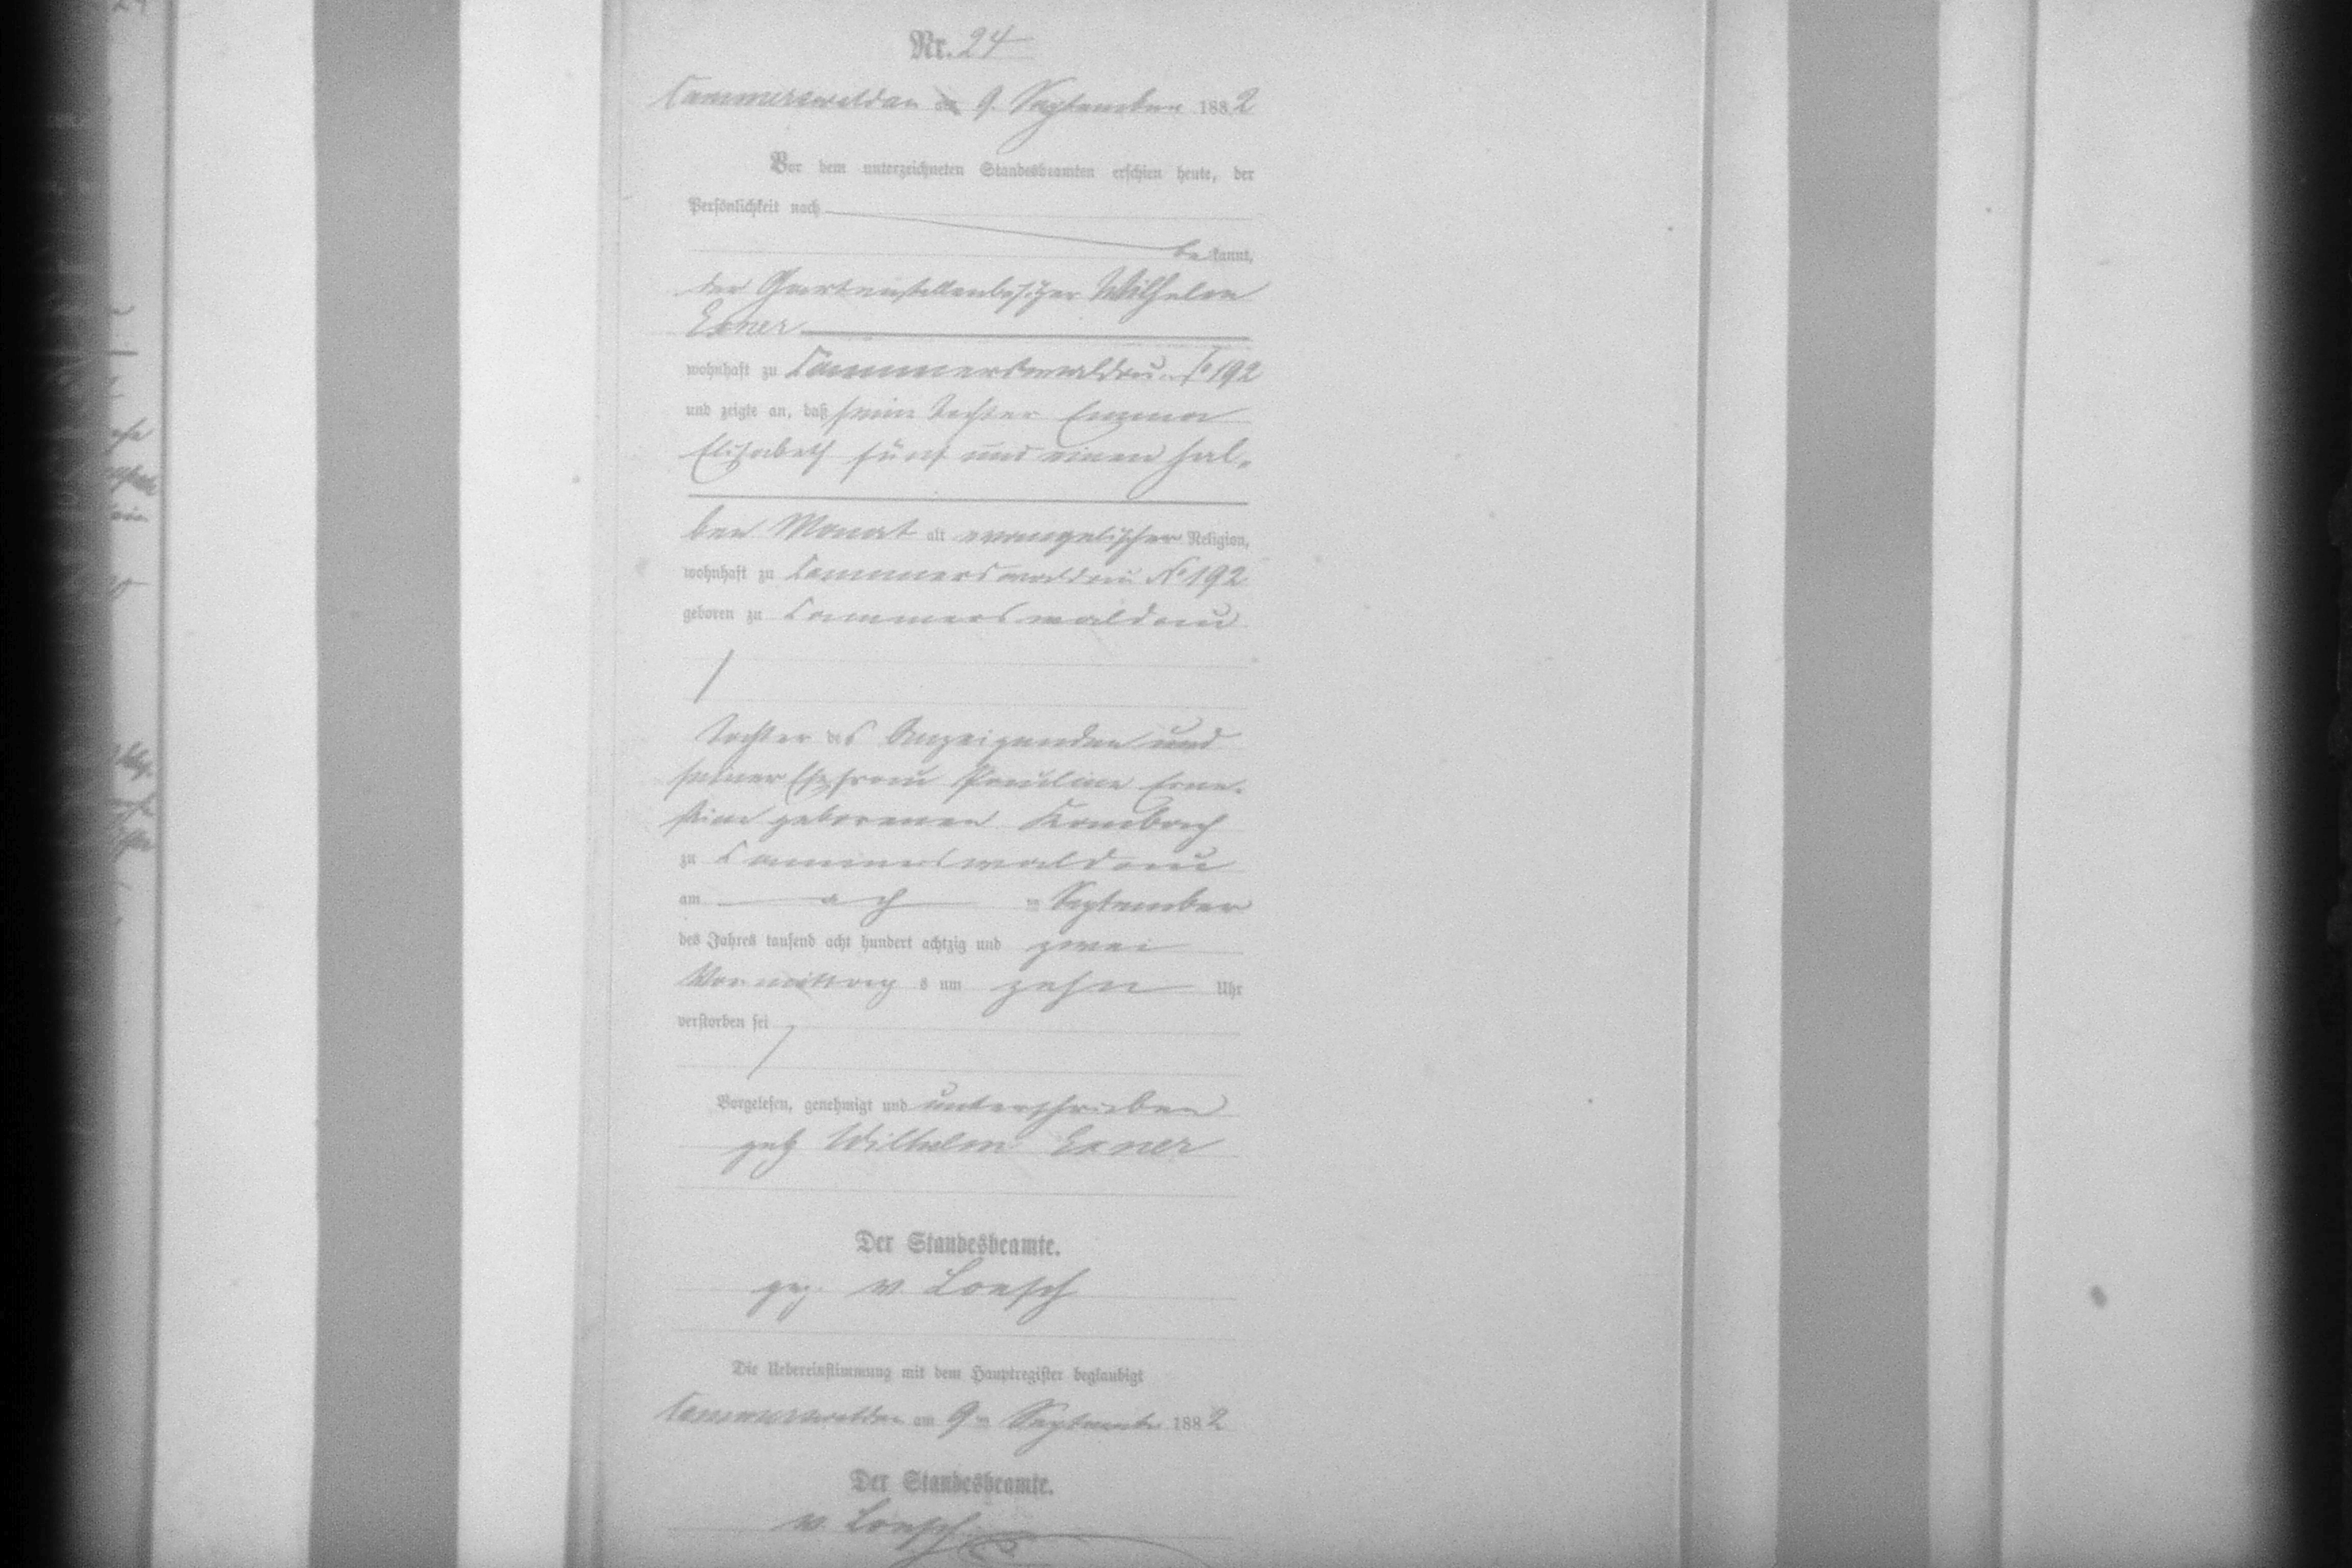 Nr. 24
Cammerswaldau am 9. September 1882
Vor dem unterzeichneten Standesbeamten erschien heute, der
Persönlichkeit nach
bekannt,
der Gartenstellenbesitzer Wilhelm
Exner
wohnhaft zu Cammerswaldau No 192
und zeigte an, daß sein Tochter Emma
Elisabeth fünf und einen hal-
ben Monat alt evangelischer Religion,
wohnhaft zu Cammerswaldau No 192
geboren zu Cammerswaldau
Tochter des Anzeigenden und
seiner Ehefrau Pauline Erne-
stine geborenen
zu Cammerswaldau
am September
des Jahres tausend acht hundert achtzig und zwei
Vormittag s um zehn Uhr
verstorben sei
Vorgelesen, genehmigt und unterschrieben
gez Wilhelm Exner
Der Standesbeamte.
gez. v Loesch
Die Uebereinstimmung mit dem Hauptregister beglaubigt
Cammerswaldau am 9 ten September 1882
Der Standesbeamte.
v. Loesch